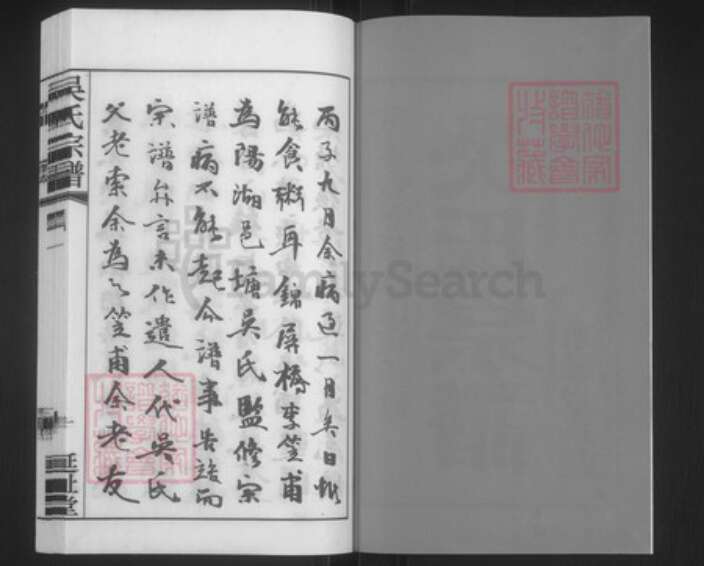 丙子九月余病逾一月矣日惟
能食粥耳錦屏橋李笠甫
為陽湖邑塘吳氏監修宗
譜病不能起今譜事告竣而
宗譜弁言未作遣人代吳氏
父老索余為之笠甫余老友
吳氏宗譜
FamilySearch